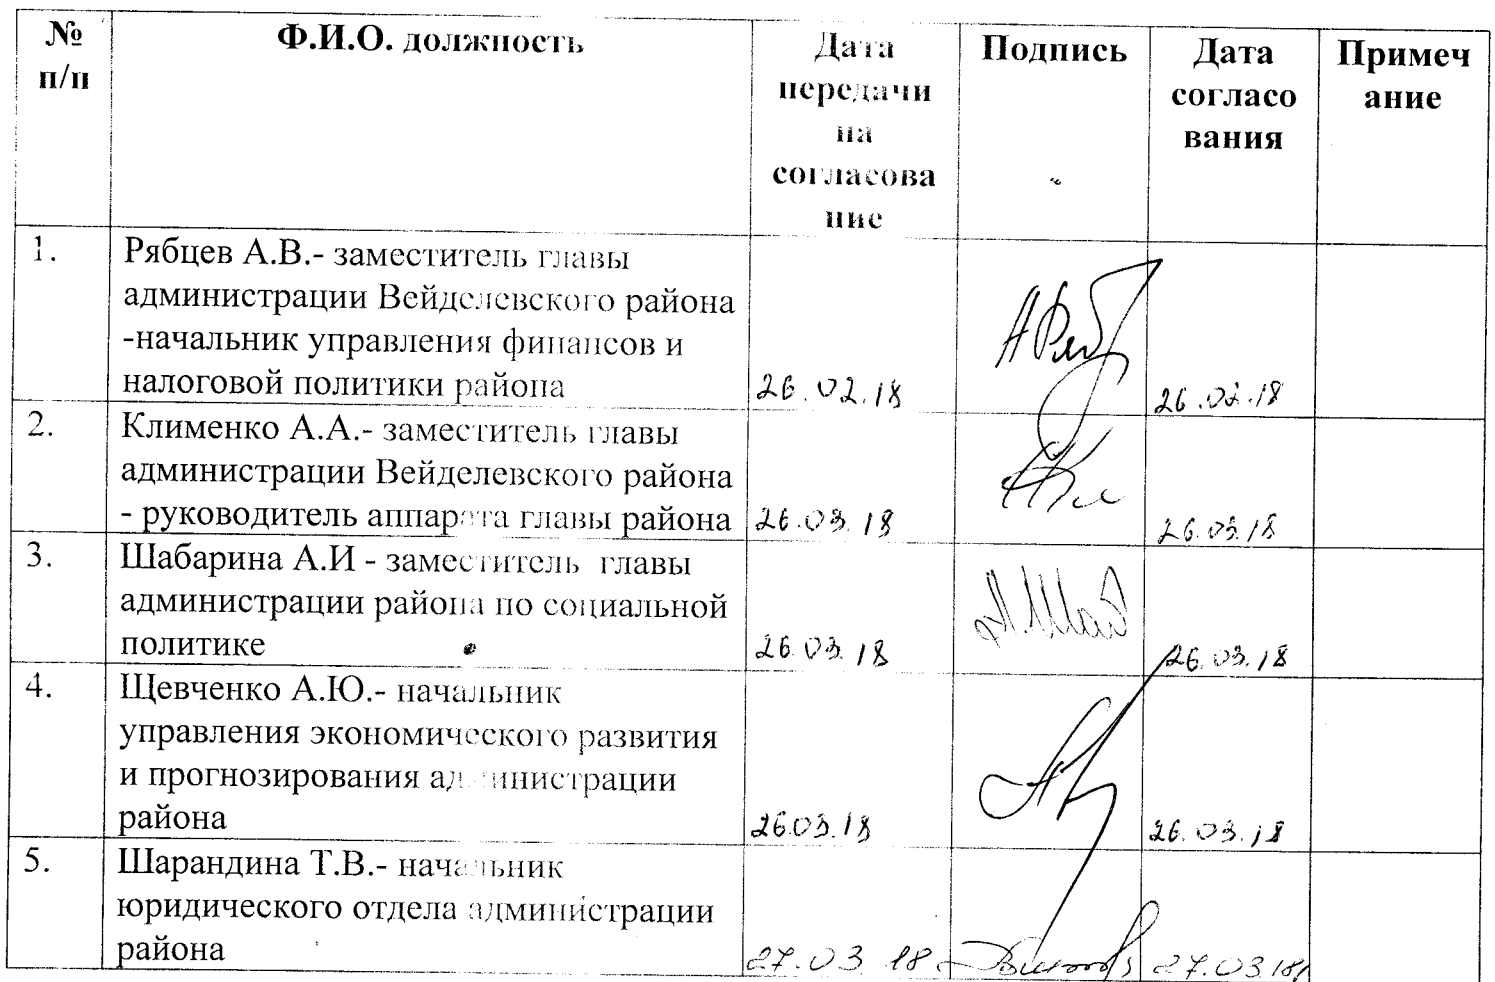 № п/п
Ф.И.О. должность
Дата передачи на согласова ние
Подпись
Дата согласо вания
Примеч ание
1.
Рябцев А.В.- заместитель главы
администрации Вейделевского района
-начальник управления финансов и
налоговой политики района
26.02.18
26.02.18
2.
Клименко А.А.- заместитель главы
администрации Вейделевского района
- руководитель аппарата главы района
26.03.18
26.03.18
3.
Шабарина А.И - заместитель главы
администрации района по социальной
политике
26.03.18
26.03.18
4.
Щевченко А.Ю.- начальник
управления экономического развития
и прогнозирования администрации
района
26.03.18
26.03.18
5.
Шарандина Т.В.- начальник
юридического отдела администрации
района
27.03.18
27.03.18